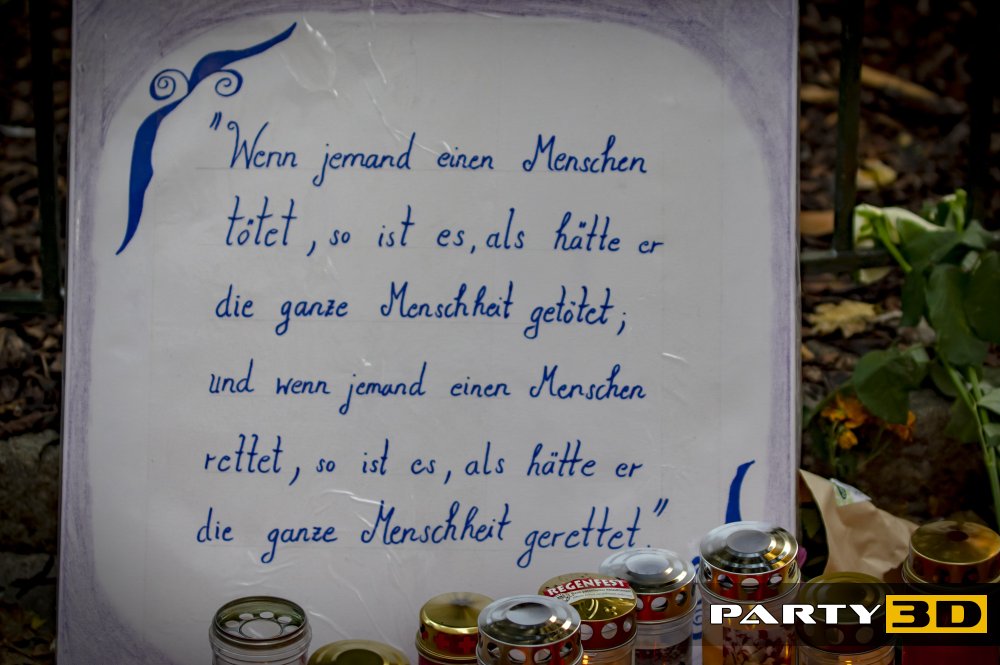 "Wenn jemand einen Menschen
tötet, so ist es, als hätte er
die ganze Menschheit getötet;
und wenn jemand einen Menschen
rettet, so ist es, als hätte er
die ganze Menschheit gerettet."
REGENFEST
PARTY 3D